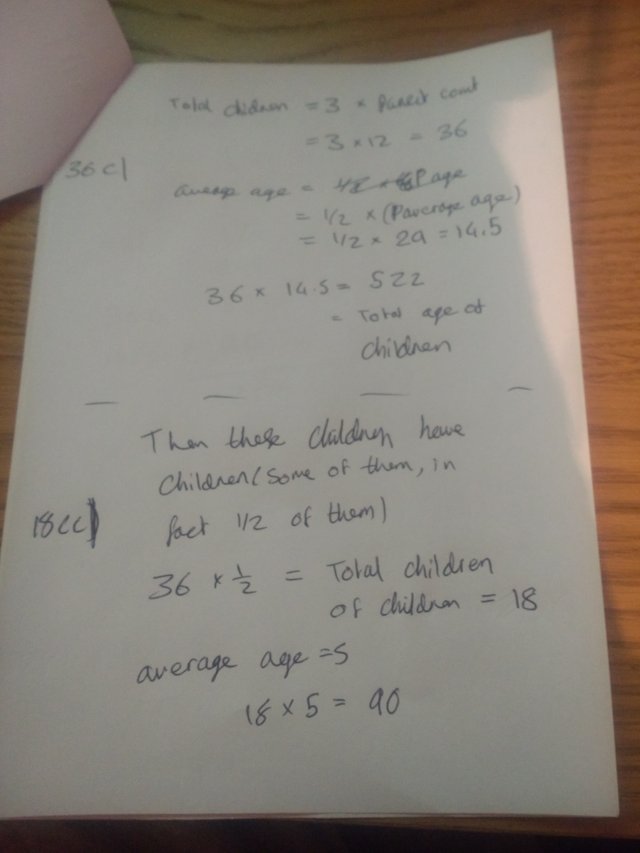 Total children = 3 × Parent count
= 3 × 12 = 36
36 c)
average age = 1/2 × P age
= 1/2 × (Paverage age)
= 1/2 × 29 = 14.5
36 × 14.5 = 522
= Total age of
children
Then these children have
children (some of them, in
18 cc)
fact 1/2 of them)
36 × 1/2 = Total children
of children = 18
average age = 5
18 × 5 = 90